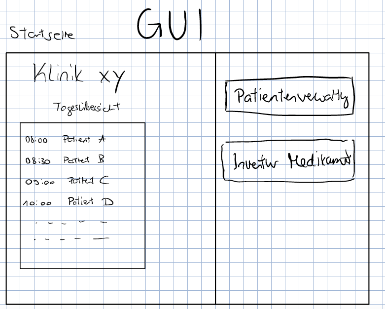 GUI
Startseite
Klinik xy
Tagesübersicht
08:00 Patient A
08:30 Patient B
09:00 Patient C
10:00 Patient D
Patientenverwaltung
Inventur Medikamente